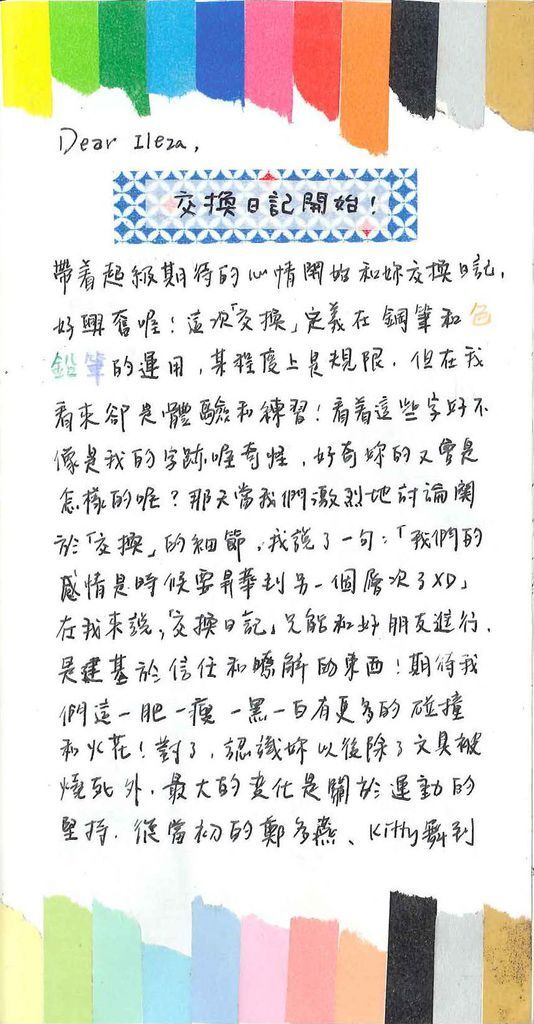 Dear Ileza,
交換日記開始!
帶着超級期待的心情開始和妳交換日記,
好興奮喔!這次「交換」定義在鋼筆和色
鉛筆的運用,某程度上是規限,但在我
看來卻是體驗和練習!看着這些字好不
像是我的字跡喔奇怪,好奇妳的又會是
怎樣的呢?那天當我們激烈地討論關
於「交換」的細節,我說了一句:「我們的
感情是時候要昇華到另一個層次了XD」
在我來說,「交換日記」只能和好朋友進行,
是建基於信任和瞭解的東西!期待我
們這一肥一瘦一黑一白有更多的碰撞
和火花!對了,認識妳以後除了文具被
燒死外,最大的變化是關於運動的
堅持,從當初的鄭多燕、Kitty舞到